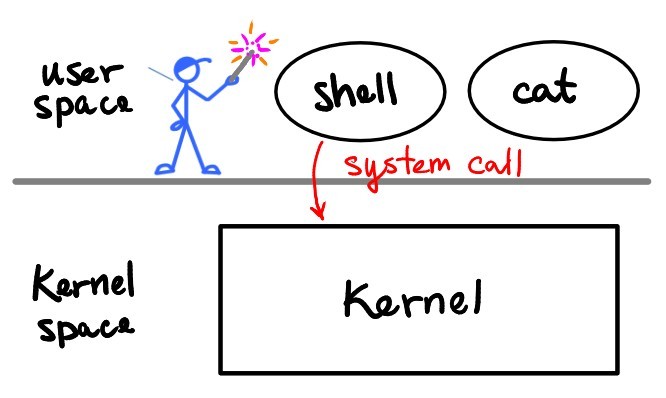 user
space
shell
cat
system call
Kernel
space
Kernel